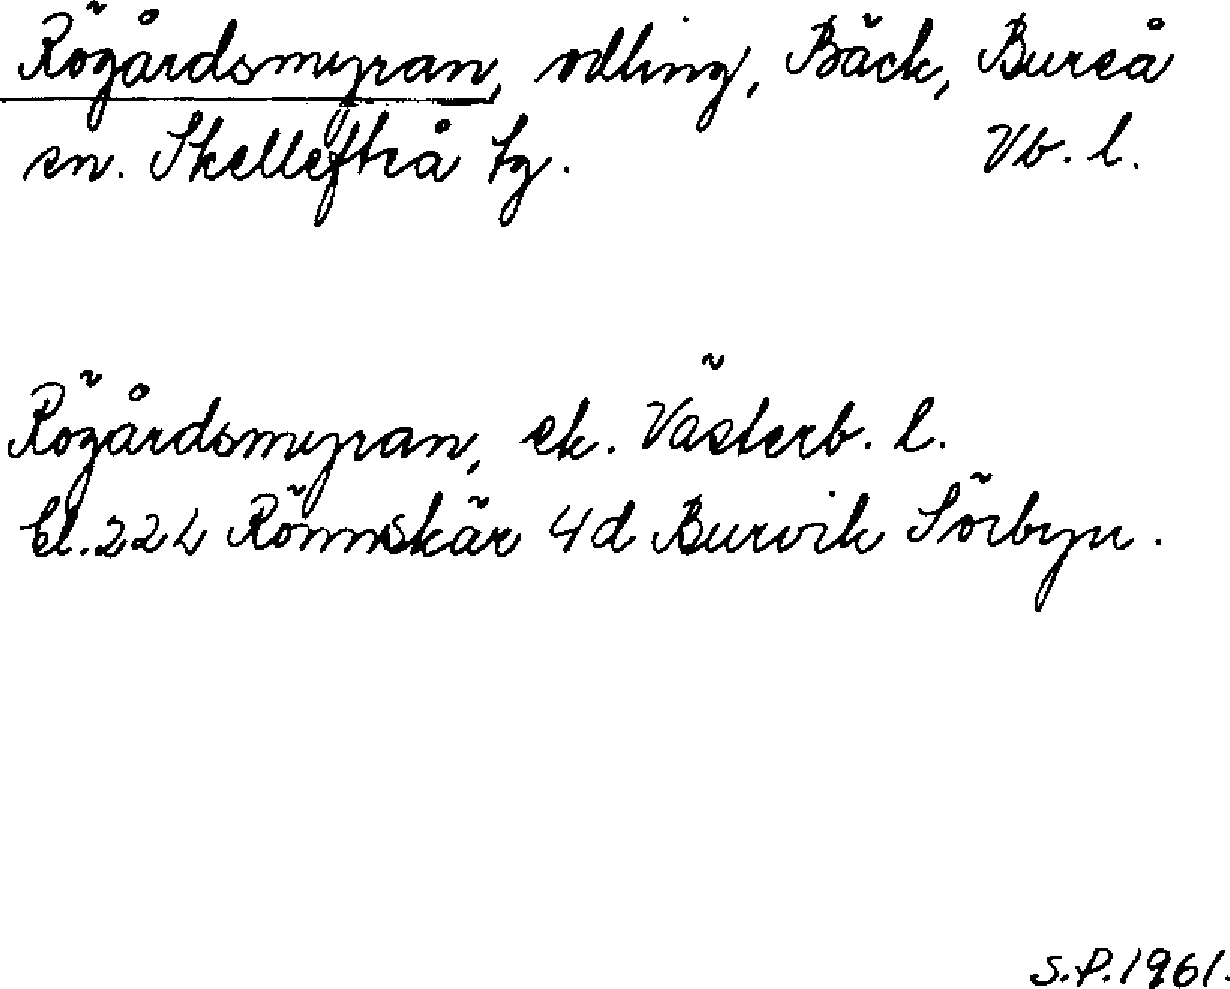 Rögårdsmyran, odling, Bäck, Bureå
sn. Skellefteå tg. Vb. l.
Rögårdsmyran, ek. Västerb. l.
bl. 22 L Rönnskär 4d Burvik Sörbyn.
S.P. 1961.